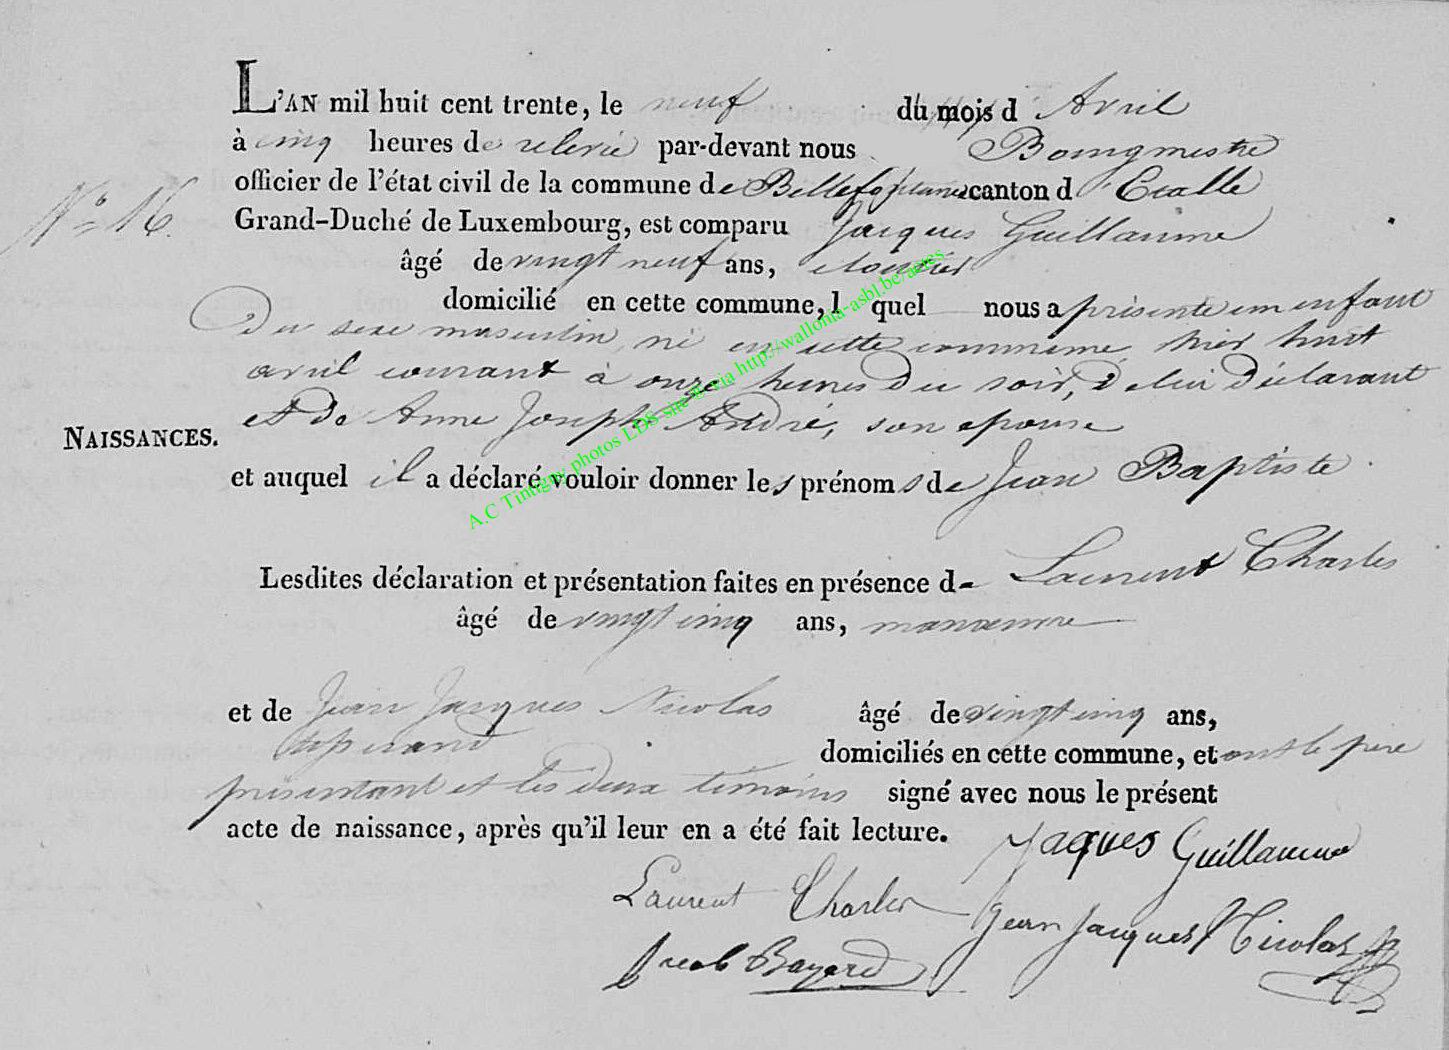 L'AN mil huit cent trente, le neuf du mois d Avril
à cinq heures de relevée par-devant nous Bourgmestre
officier de l'état civil de la commune de Bellefontaine canton d'Etalle
N° 16.
Grand-Duché de Luxembourg, est comparu Jacques Guillaume
âgé de vingt neuf ans, cloutier
domicilié en cette commune, l quel nous a présenté un enfant
du sexe masculin, né en cette commune, hier huit
avril courant à onze heures du soir, de lui déclarant
et de Anne Joseph André, son épouse
NAISSANCES.
et auquel il a déclaré vouloir donner les prénoms de Jean Baptiste
A.C Tintigny photos LDS site GS via http://wallonia-asbl.be/actes
Lesdites déclaration et présentation faites en présence de Laurent Charles
âgé de vingt cinq ans, manœuvre
et de Jean Jacques Nicolas âgé de vingt cinq ans,
domiciliés en cette commune, et ont le père
présentant et les deux témoins signé avec nous le présent
acte de naissance, après qu'il leur en a été fait lecture.
Jaques Guillaume
Laurent Charles Jean Jacques Nicolas
Jacob Bayard